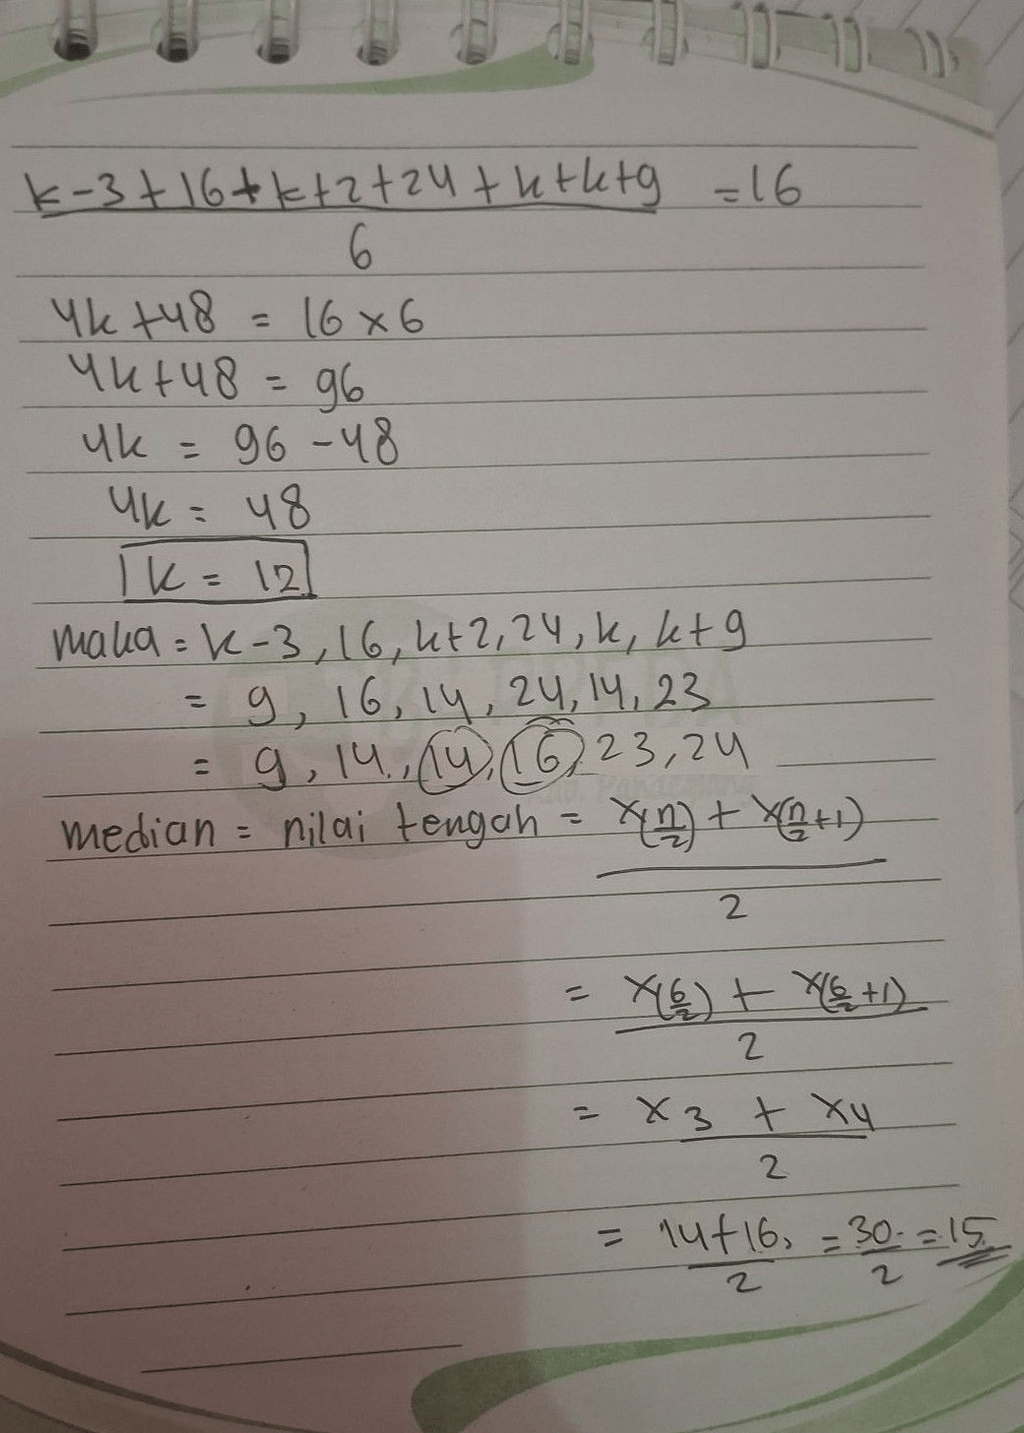 k-3+16+k+2+24+k+k+9 = 16
6
4k+48 = 16×6
4k+48 = 96
4k = 96-48
4k = 48
k = 12
maka = k-3, 16, k+2, 24, k, k+9
= 9, 16, 14, 24, 14, 23
= 9, 14, 14, 16, 23, 24
median = nilai tengah = x(n/2) + x(n/2+1)
2
= x(6/2) + x(6/2+1)
2
= x3 + x4
2
= 14+16 = 30 = 15
2 2